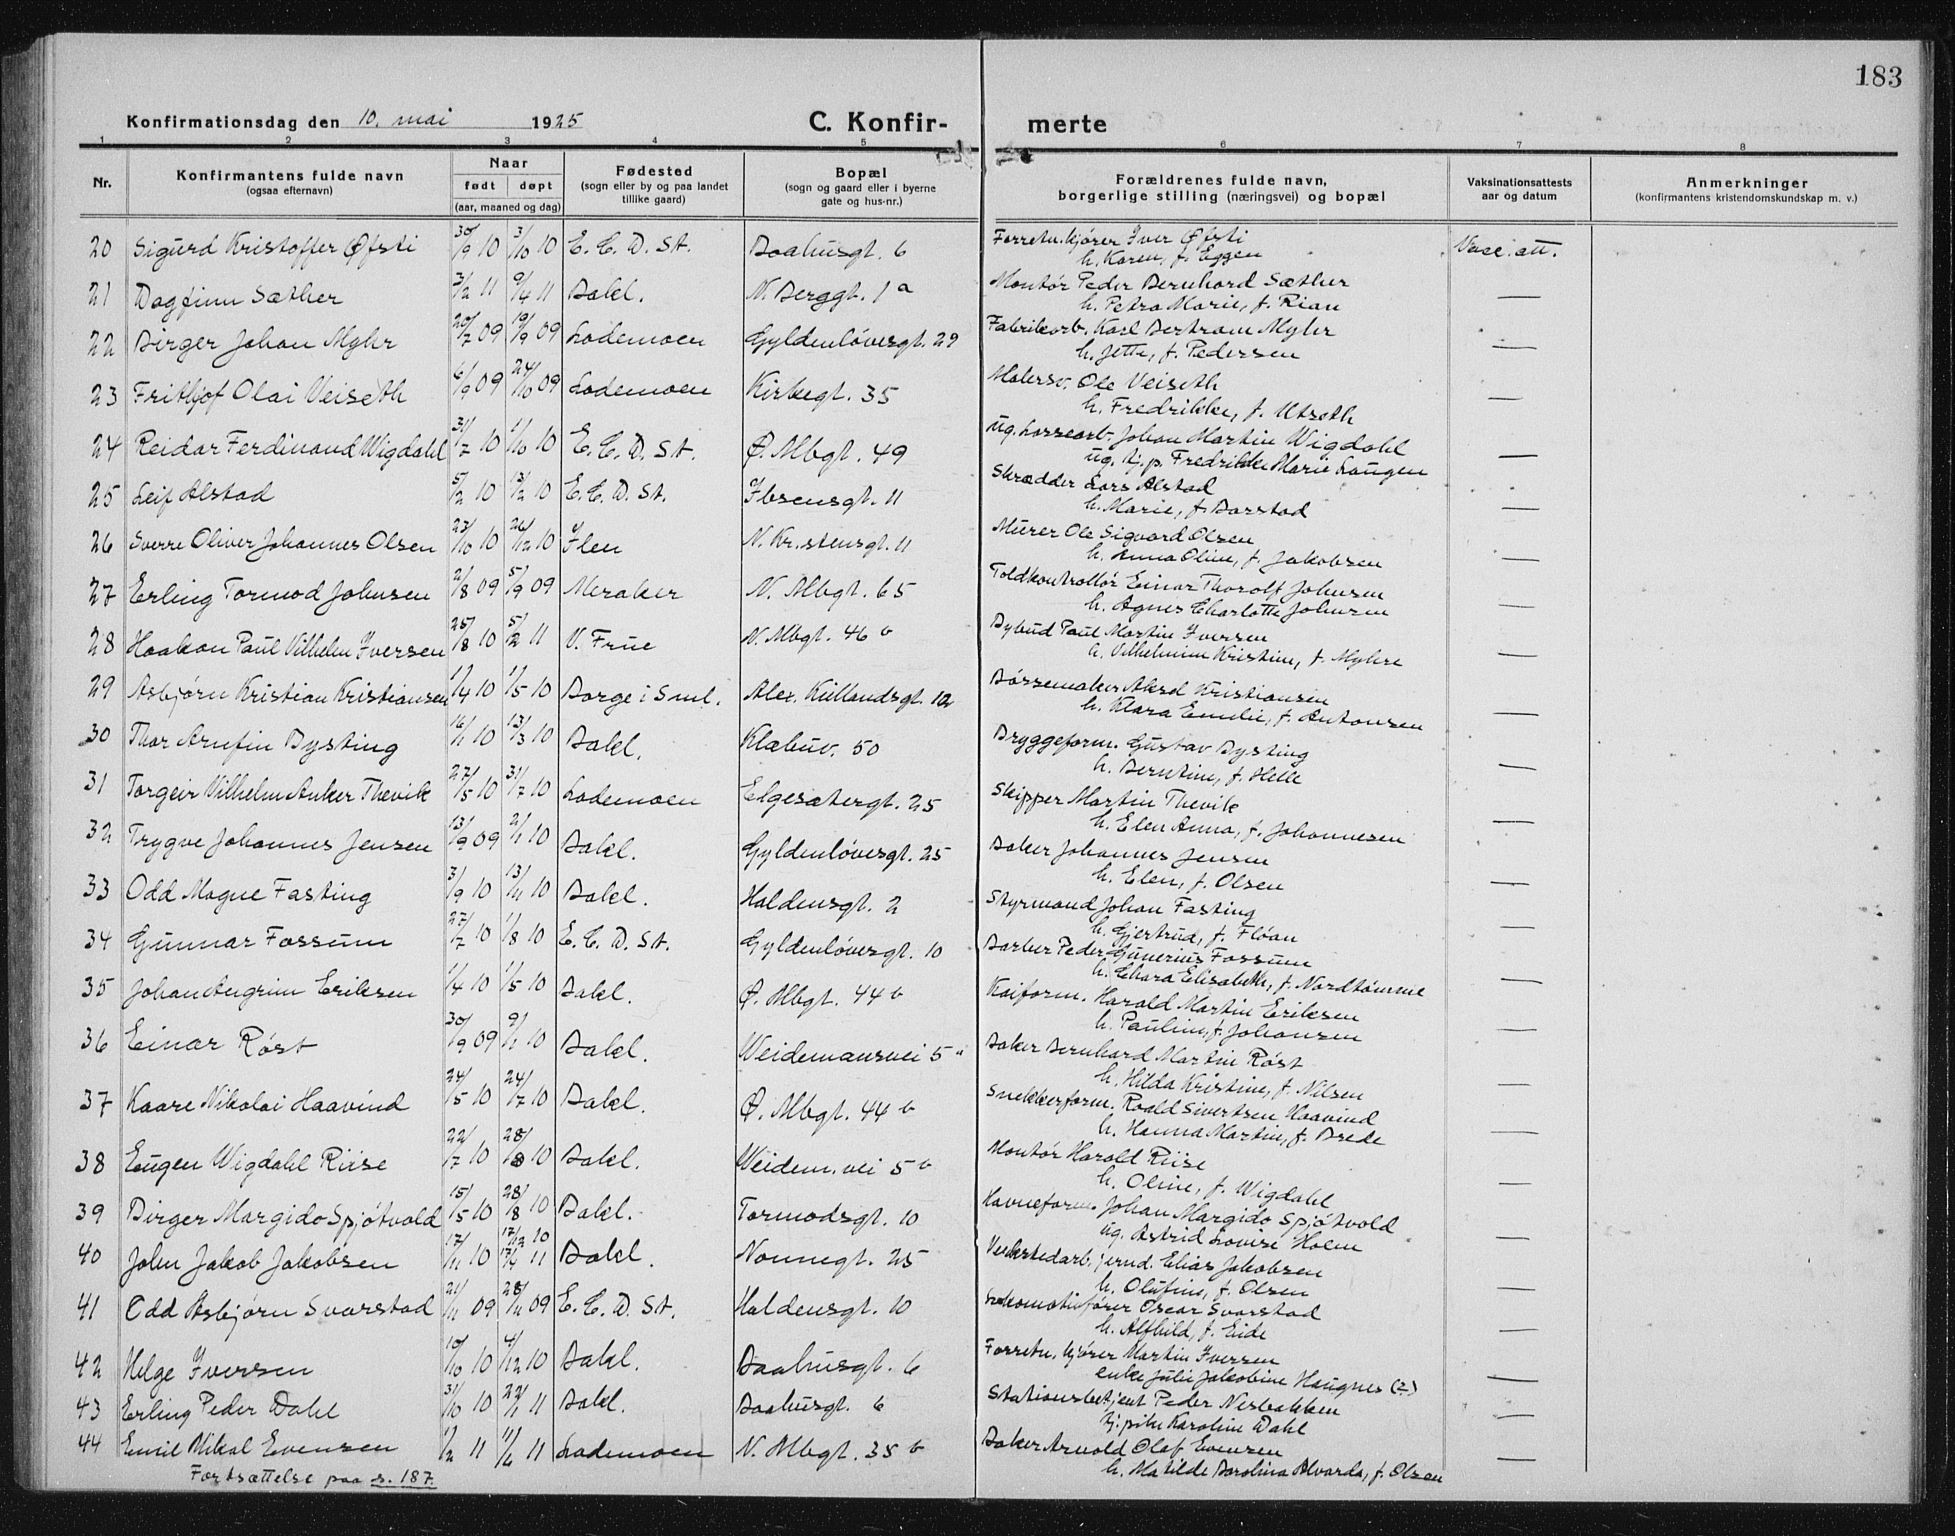 183
Konfirmationsdag den 10. mai 1925 C. Konfir- merte
1 2 3 4 5 6 7 8
Nr. Konfirmantens fulde navn (ogsaa efternavn) Naar født døpt (aar, maaned og dag) Fødested (sogn eller by og paa landet tillike gaard) Bopæl (sogn og gaard eller i byerne gate og hus-nr.) Forældrenes fulde navn, borgerlige stilling (næringsvei) og bopæl Vaksinationsattests aar og datum Anmerkninger (konfirmantens kristendomskundskap m. v.)
20 Sigurd Kristoffer Øfsti 30/9 10 3/10 10 E. C. D. St. Baahusgt. 6 Forretn.kjører Iver Øfsti Vacc. att.
h. Karen, f. Eggen
21 Dagfinn Sæther 3/2 11 9/4 11 Bakl. N. Berggt. 1a Montør Peder Bernhard Sæther —
h. Petra Marie, f. Rian
22 Birger Johan Myhr 20/7 09 19/9 09 Lademoen Gyldenløvesgt. 29 Fabrikarb. Karl Bertram Myhr —
h. Jette, f. Pedersen
23 Frithjof Olai Veiseth 6/9 09 24/10 09 Lademoen Kirkegt. 35 Malersv. Ole Veiseth —
h. Fredrikke, f. Utseth
24 Reidar Ferdinand Wigdahl 31/7 10 1/10 10 E. C. D. St. Ø. Mbgt. 49 Ug. Lossearb. Johan Martin Wigdahl —
ug. tj.p. Fredrikke Marie Laugen
25 Leif Alstad 5/2 10 13/2 10 E. C. D. St. Ibsensgt. 11 Skrædder Lars Alstad —
h. Marie, f. Barstad
26 Sverre Oliver Johannes Olsen 23/10 10 26/12 10 Ilen N. Kristensgt. 11 Murer Ole Sigvard Olsen —
h. Anna Oline, f. Jakobsen
27 Erling Tormod Johnsen 2/8 09 5/9 09 Meraker N. Mbgt. 65 Toldkontrollør Einar Thorolf Johnsen —
h. Agnes Charlotte Johnsen
28 Haakon Paul Vilhelm Iversen 25/8 10 5/2 11 V. Frue N. Mbgt. 46 b Bybud Paul Martin Iversen —
h. Vilhelmine Kristine, f. Myhre
29 Asbjørn Kristian Kristiansen 1/4 10 1/5 10 Borge i Sml. Alex. Kiellandsgt. 12 Børsemaker Aksel Kristiansen —
h. Klara Emilie, f. Antonsen
30 Thor Arnfin Bysting 16/1 10 13/3 10 Bakl. Klæbuv. 50 Bryggeform. Gustav Bysting —
h. Berntine, f. Helle
31 Torgeir Vilhelm Anker Thevik 27/5 10 31/7 10 Lademoen Elgesætergt. 25 Skipper Martin Thevik —
h. Elen Anna, f. Johannesen
32 Trygve Johannes Jensen 13/9 09 2/1 10 Bakl. Gyldenløvesgt. 25 Baker Johannes Jensen —
h. Elen, f. Olsen
33 Odd Magne Fasting 3/9 10 13/11 10 Bakl. Haldensgt. 2 Styrmand Johan Fasting
h. Gjertrud, f. Fløan
34 Gunnar Fossum 27/7 10 1/8 10 E. C. D. St. Gyldenløvesgt. 10 Barber Peder Gunerius Fossum —
h. Clara Elisabeth, f. Nordtømme
35 Johan Angrim Eriksen 1/4 10 1/5 10 Bakl. Ø. Mbgt. 44 b Kaiform. Harald Martin Eriksen —
h. Pauline, f. Johansen
36 Einar Røst 30/9 09 9/1 10 Bakl. Weidemansvei 5 a Baker Bernhard Martin Røst —
h. Hilda Kristine, f. Nilsen
37 Kaare Nikolai Haavind 24/5 10 24/7 10 Bakl. Ø. Mbgt. 44 b Snekkerform. Roald Sivertsen Haavind —
h. Hanna Martine, f. Brede
38 Eugen Wigdahl Riise 22/7 10 28/8 10 Bakl. Weidem.vei 5 b Montør Harold Riise —
h. Oline, f. Wigdahl
39 Birger Margido Spjøtvold 15/5 10 28/8 10 Bakl. Tormodsgt. 10 Havneform. Johan Margido Spjøtvold —
ug. Astrid Lovise Holm
40 John Jakob Jakobsen 17/11 10 17/12 10 17/4 11 Bakl. Nonnegt. 25 Verkstedarb. jernd. Elias Jakobsen —
h. Olufine, f. Olsen
41 Odd Asbjørn Svarstad 21/11 09 28/11 09 E. C. D. St. Haldensgt. 10 Lokomotivfører Oscar Svarstad —
h. Alfhild, f. Eide
42 Helge Iversen 10/10 10 4/12 10 Bakl. Baahusgt. 6 Forretn. kjører Martin Iversen —
enke Julie Jakobine Haugnes (?)
43 Erling Peder Dahl 31/10 10 22/1 11 Bakl. Baahusgt. 6 Stationsbetjent Peder Nesbakken —
tj.pike Karoline Dahl
44 Emil Mikal Evensen 1/2 11 11/6 11 Lademoen N. Mbgt. 35 b Baker Arnold Olaf Evensen —
h. Matilde Barolina Alvarda, f. Olsen
Fortsættelse paa s. 187.